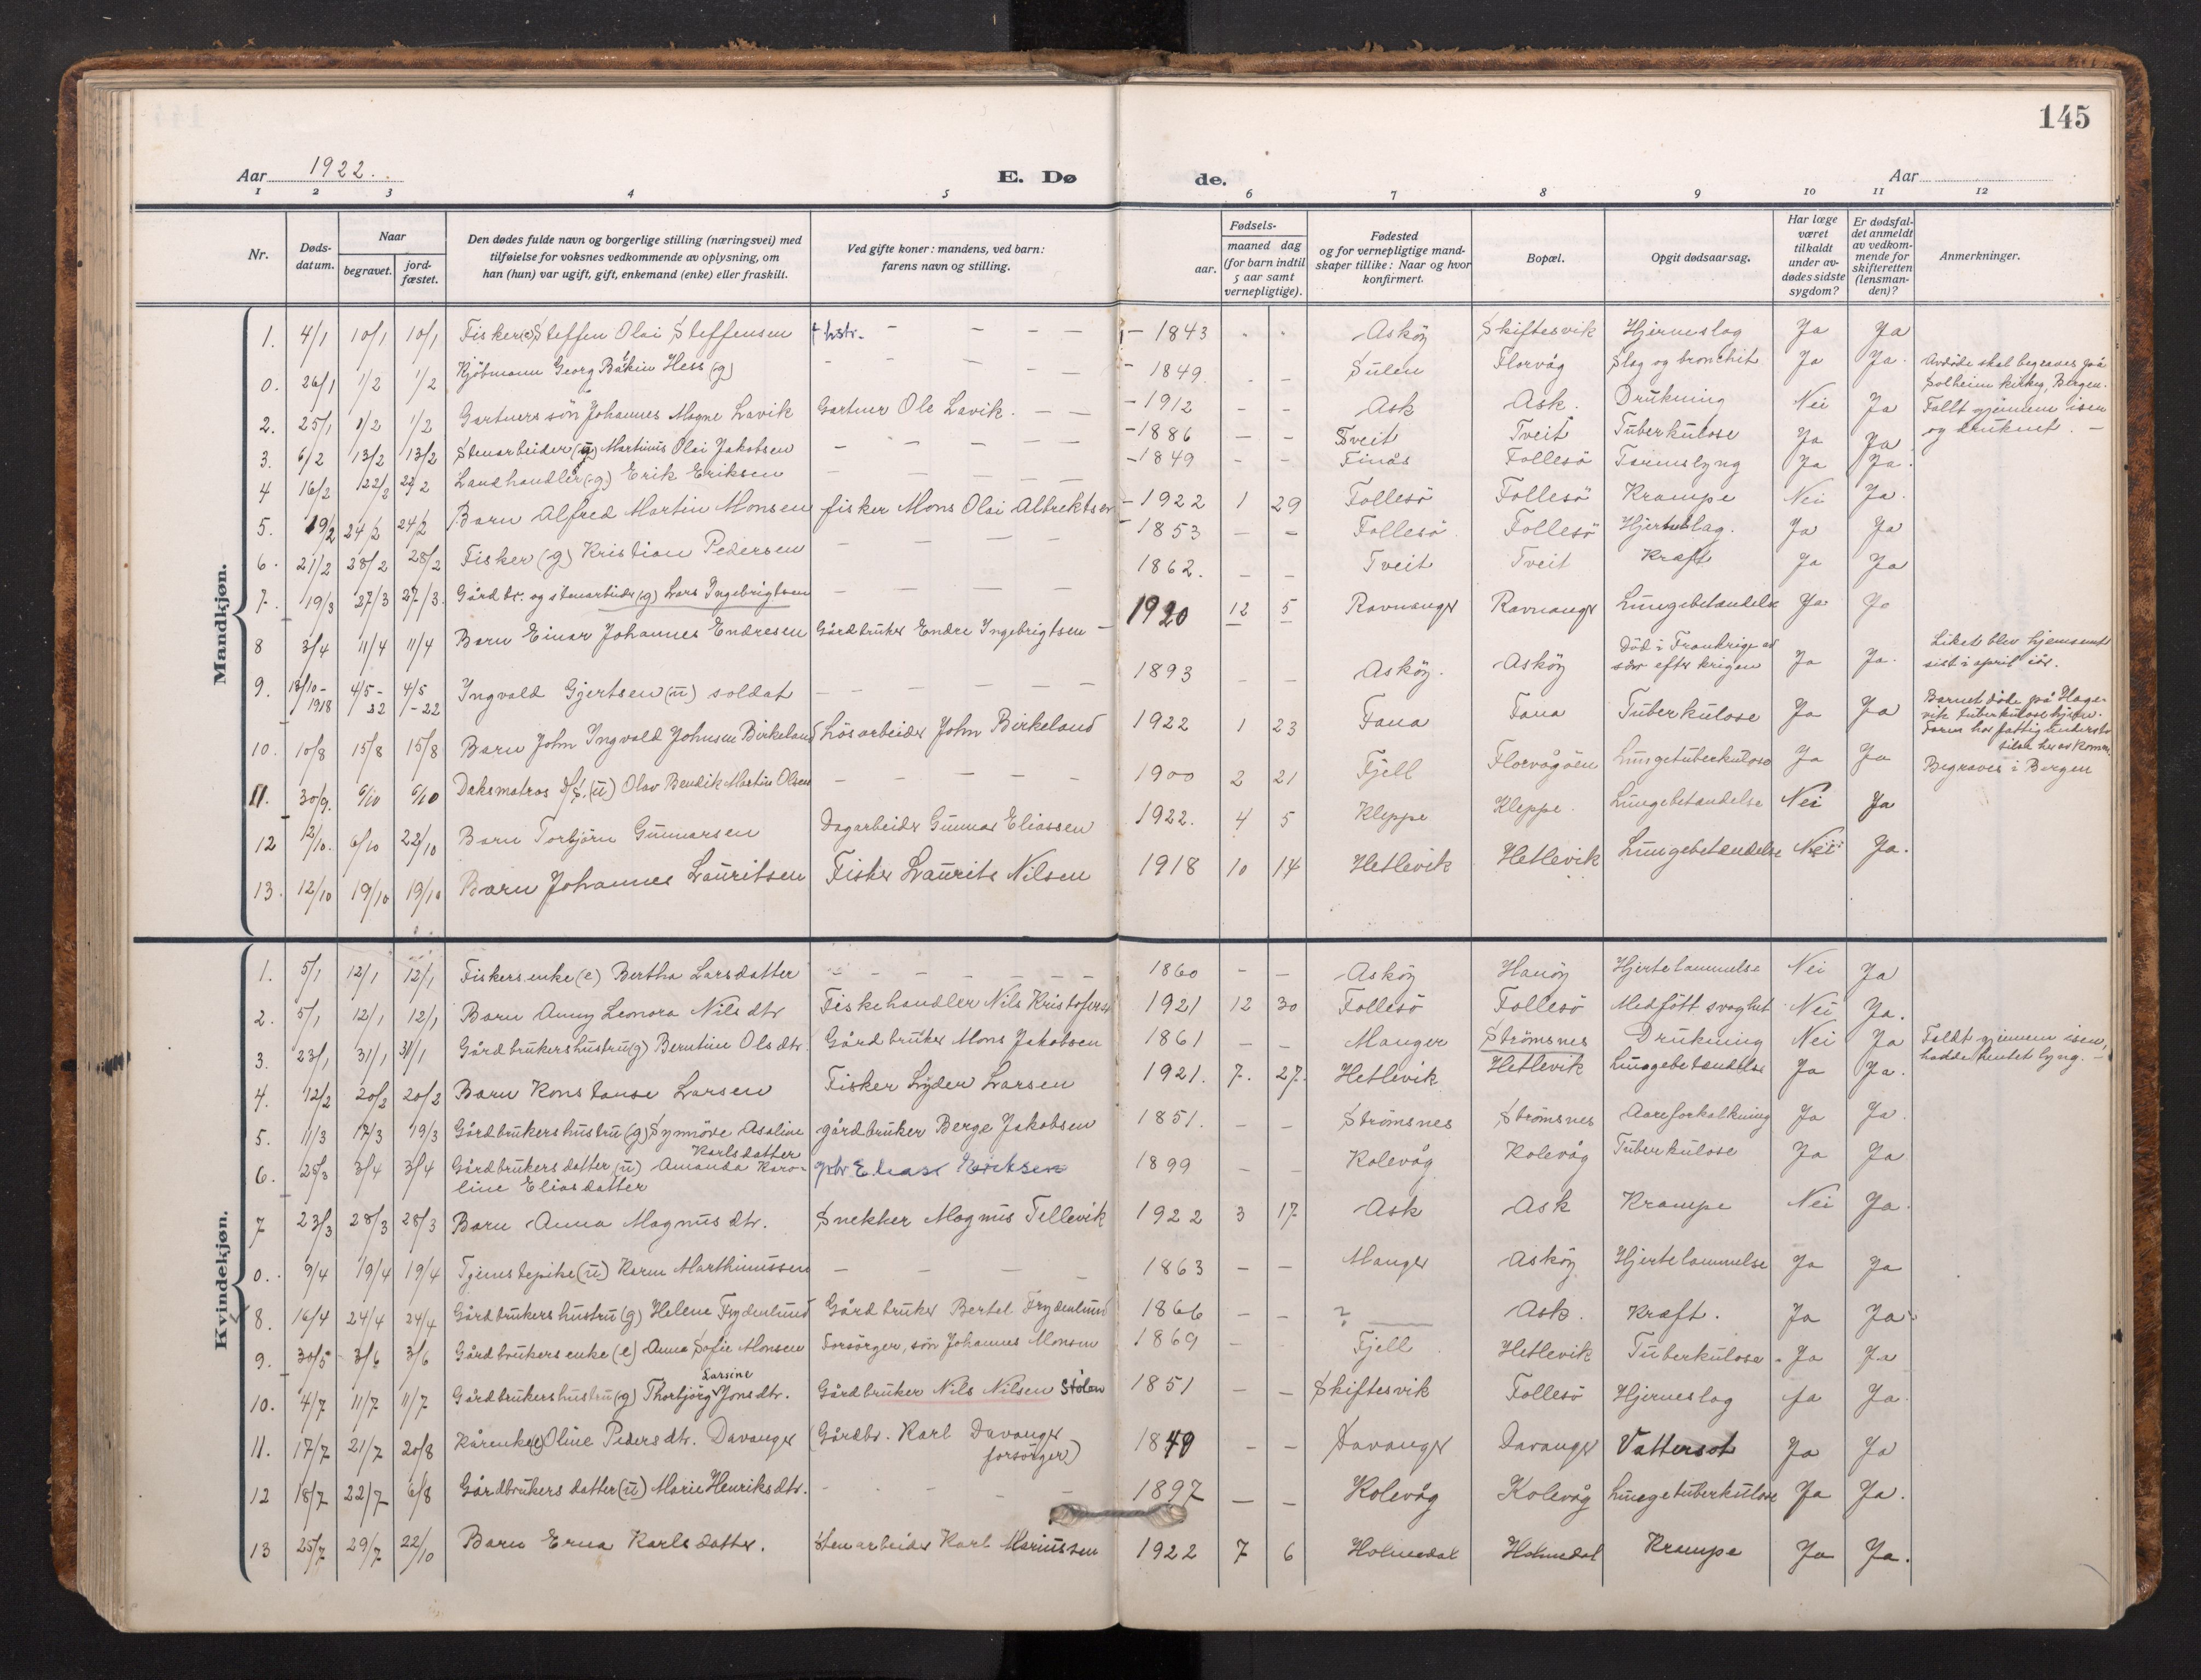 145
Aar 1922.
E. Dø de.
Aar
1 2 3 4 5 6 7 8 9 10 11 12
Nr.
Døds-
datum.
Naar
begravet.
jord-
fæstet.
Den dødes fulde navn og borgerlige stilling (næringsvei) med
tilføielse for voksnes vedkommende av oplysning, om
han (hun) var ugift, gift, enkemand (enke) eller fraskilt.
Ved gifte koner: mandens, ved barn:
farens navn og stilling.
aar.
Fødsels-
maaned dag
(for barn indtil
5 aar samt
vernepligtige).
Fødested
og for vernepligtige mand-
skaper tillike: Naar og hvor
konfirmert.
Bopæl.
Opgit dødsaarsag.
Har læge
været
tilkaldt
under av-
dødes sidste
sygdom?
Er dødsfal-
det anmeldt
av vedkom-
mende for
skifteretten
(lensman-
den)?
Anmerkninger.
Mandkjøn.
1. 4/1 10/1 10/1 Fisker (e) Steffen Olai Steffensen - - - - - 1843 - - Askøy Skiftesvik Hjerneslag Ja Ja
0. 26/1 1/2 1/2 Kjöbmann Georg Hess (g) - - - - - 1849 - - Sulen Florvåg Slag og bronchit Ja Ja. Avdöde skal begraves på
Solheim kirkeg, Bergen.
2. 25/1 1/2 1/2 Gartners sön Johannes Magne Lavik Gartner Ole Lavik. - - - 1912 - - Ask Ask. Drukning Nei Ja Fallt gjennem isen
og druknet. -
3. 6/2 13/2 13/2 Stenarbeider (g) Martinus Olai Jakobsen - - - - - 1886 - - Tveit Tveit Tuberkulose Ja Ja
4 16/2 22/2 22/2 Landhandler (g) Erik Eriksen - - - - - 1849 - - Finås Follesö Tarmslyng Ja Ja.
5. 19/2 24/2 24/2 Barn Alfred Martin Monsen fisker Mons Olai Albrektsen - 1922 1 29 Follesö Follesö Krampe Nei Ja.
6. 21/2 28/2 28/2 Fisker (g) Kristian Pedersen - - - - - 1853 - - Follesö Follesö Hjerteslag. Ja Ja
7. 19/3 27/3 27/3. Gårdbr. og stenarbeider (g) Lars Ingebrigtsen - - - - - 1862. - - Tveit Tveit Kræft Ja Ja
8 3/4 11/4 11/4 Barn Einar Johannes Endresen Gårdbruker Endre Ingebrigtsen - 1920 12 5 Ravnanger Ravnanger Lungebetændelse Ja Ja
9. 13/10-1918 4/5-22 4/5-22 Ingvald Gjertsen (u) soldat - - - - - 1893 - - Askøy. Askøy Död i Frankrige av
sår efter krigen Ja Ja. Liket blev hjemsendt
sist i april iår.
10. 10/8 15/8 15/8 Barn John Ingvald Johnsen Birkeland Lösarbeider John Birkeland 1922 1 23 Fana Fana Tuberkulose Ja Ja Barnet döde på Hage-
vik tuberkulosehjem.
Faren har fattigunderstö
telse her av komm.
11. 30/9. 6/10 6/10 Daksmatros (u) Olav Bendik Martin Olsen - - - - - 1900 2 21 Fjell Florvågöen Lungetuberkulose Ja Ja Begraves i Bergen
12 2/10. 6/10 22/10 Barn Torbjörn Gunnarsen Dagarbeider Gunnar Eliassen 1922. 4 5 Kleppe Kleppe. Lungebetændelse Nei Ja
13. 12/10 19/10 19/10 Barn Johannes Lauritsen Fisker Laurits Nilsen 1918 10 14 Hetlevik Hetlevik Lungebetændelse Nei Ja.
Kvindekjøn.
1. 5/1 12/1 12/1 Fiskers enke (e) Bertha Larsdatter - - - - - - 1860 - - Askøy Hanøy Hjertelammelse Nei Ja
2. 5/1 12/1 12/1 Barn Anny Leonora Nilsdtr Fiskehandler Nils Kristofersen 1921 12 30 Follesö Follesö Medfött svaghet Nei Ja.
3. 23/1 31/1 31/1 Gårdbrukershustru (g) Berntine Olsdtr. Gårdbruker Mons Jakobsen 1861 - - Manger Strömsnes Drukning Nei Ja Faldt gjennem isen,
hadde hentet lyng. -
4. 12/2 20/2 20/2 Barn Konstanse Larsen Fisker Lyder Larsen 1921. 7. 27. Hetlevik Hetlevik Lungebetændelse Ja Ja.
5. 11/3 17/3 19/3 Gårdbrukershustru (g) Synnöve Asaline
Karlsdatter gårdbruker Berge Jakobsen 1851. - - Strömsnes Strömsnes Aareforkalkning Ja Ja.
6. 25/3 3/4 3/4 Gårdbrukers datter (u) Amanda Karo-
line Eliasdatter gbr Elias Eriksen 1899 - - Kolevåg Kolevåg Tuberkulose Ja Ja
7 23/3 28/3 28/3 Barn Anna Magnusdtr. Snekker Magnus Tellevik 1922 3 17 Ask Ask Krampe Nei Ja.
0. 9/4 19/4 19/4 Tjenestepike (u) Karen Marthinussen - - - - 1863 - - Manger Askøy Hjertelammelse Ja Ja
8. 16/4 24/4 24/4 Gårdbrukershustru (g) Helene Frydenlund Gårdbruker Bertel Frydenlund 1866 - - ? Ask. Kræft. Ja Ja
9. 30/5 3/6 3/6 Gårdbrukers enke (e) Anna Sofie Monsen Forsörger, sön Johannes Monsen 1869 - - Fjell Hetlevik Tuberkulose. Ja Ja
10. 4/7 11/7 11/7 Gårdbrukershustru (g) Thorbjörg Larsine Jonsdtr. Gårdbruker Nils Nilsen Stölen 1851 - - Skiftesvik Follesö Hjerneslag Ja Ja.
11. 17/7 21/7 20/8 Kårenke (e) Oline Pedersdtr. Davanger (Gårdbr. Karl Davanger
forsörger) 1849 - - Davanger Davanger Vattersot Ja Ja
12 18/7 22/7 6/8 Gårdbrukers datter (u) Marie Henriksdtr. - - - - 1897 - - Kolevåg Kolevåg Lungetuberkulose Ja Ja.
13 25/7 29/7 22/10 Barn Erna Karlsdatter. Stenarbeider Karl Mariussen 1922 7 6 Holmedal Holmedal Krampe Ja Ja.